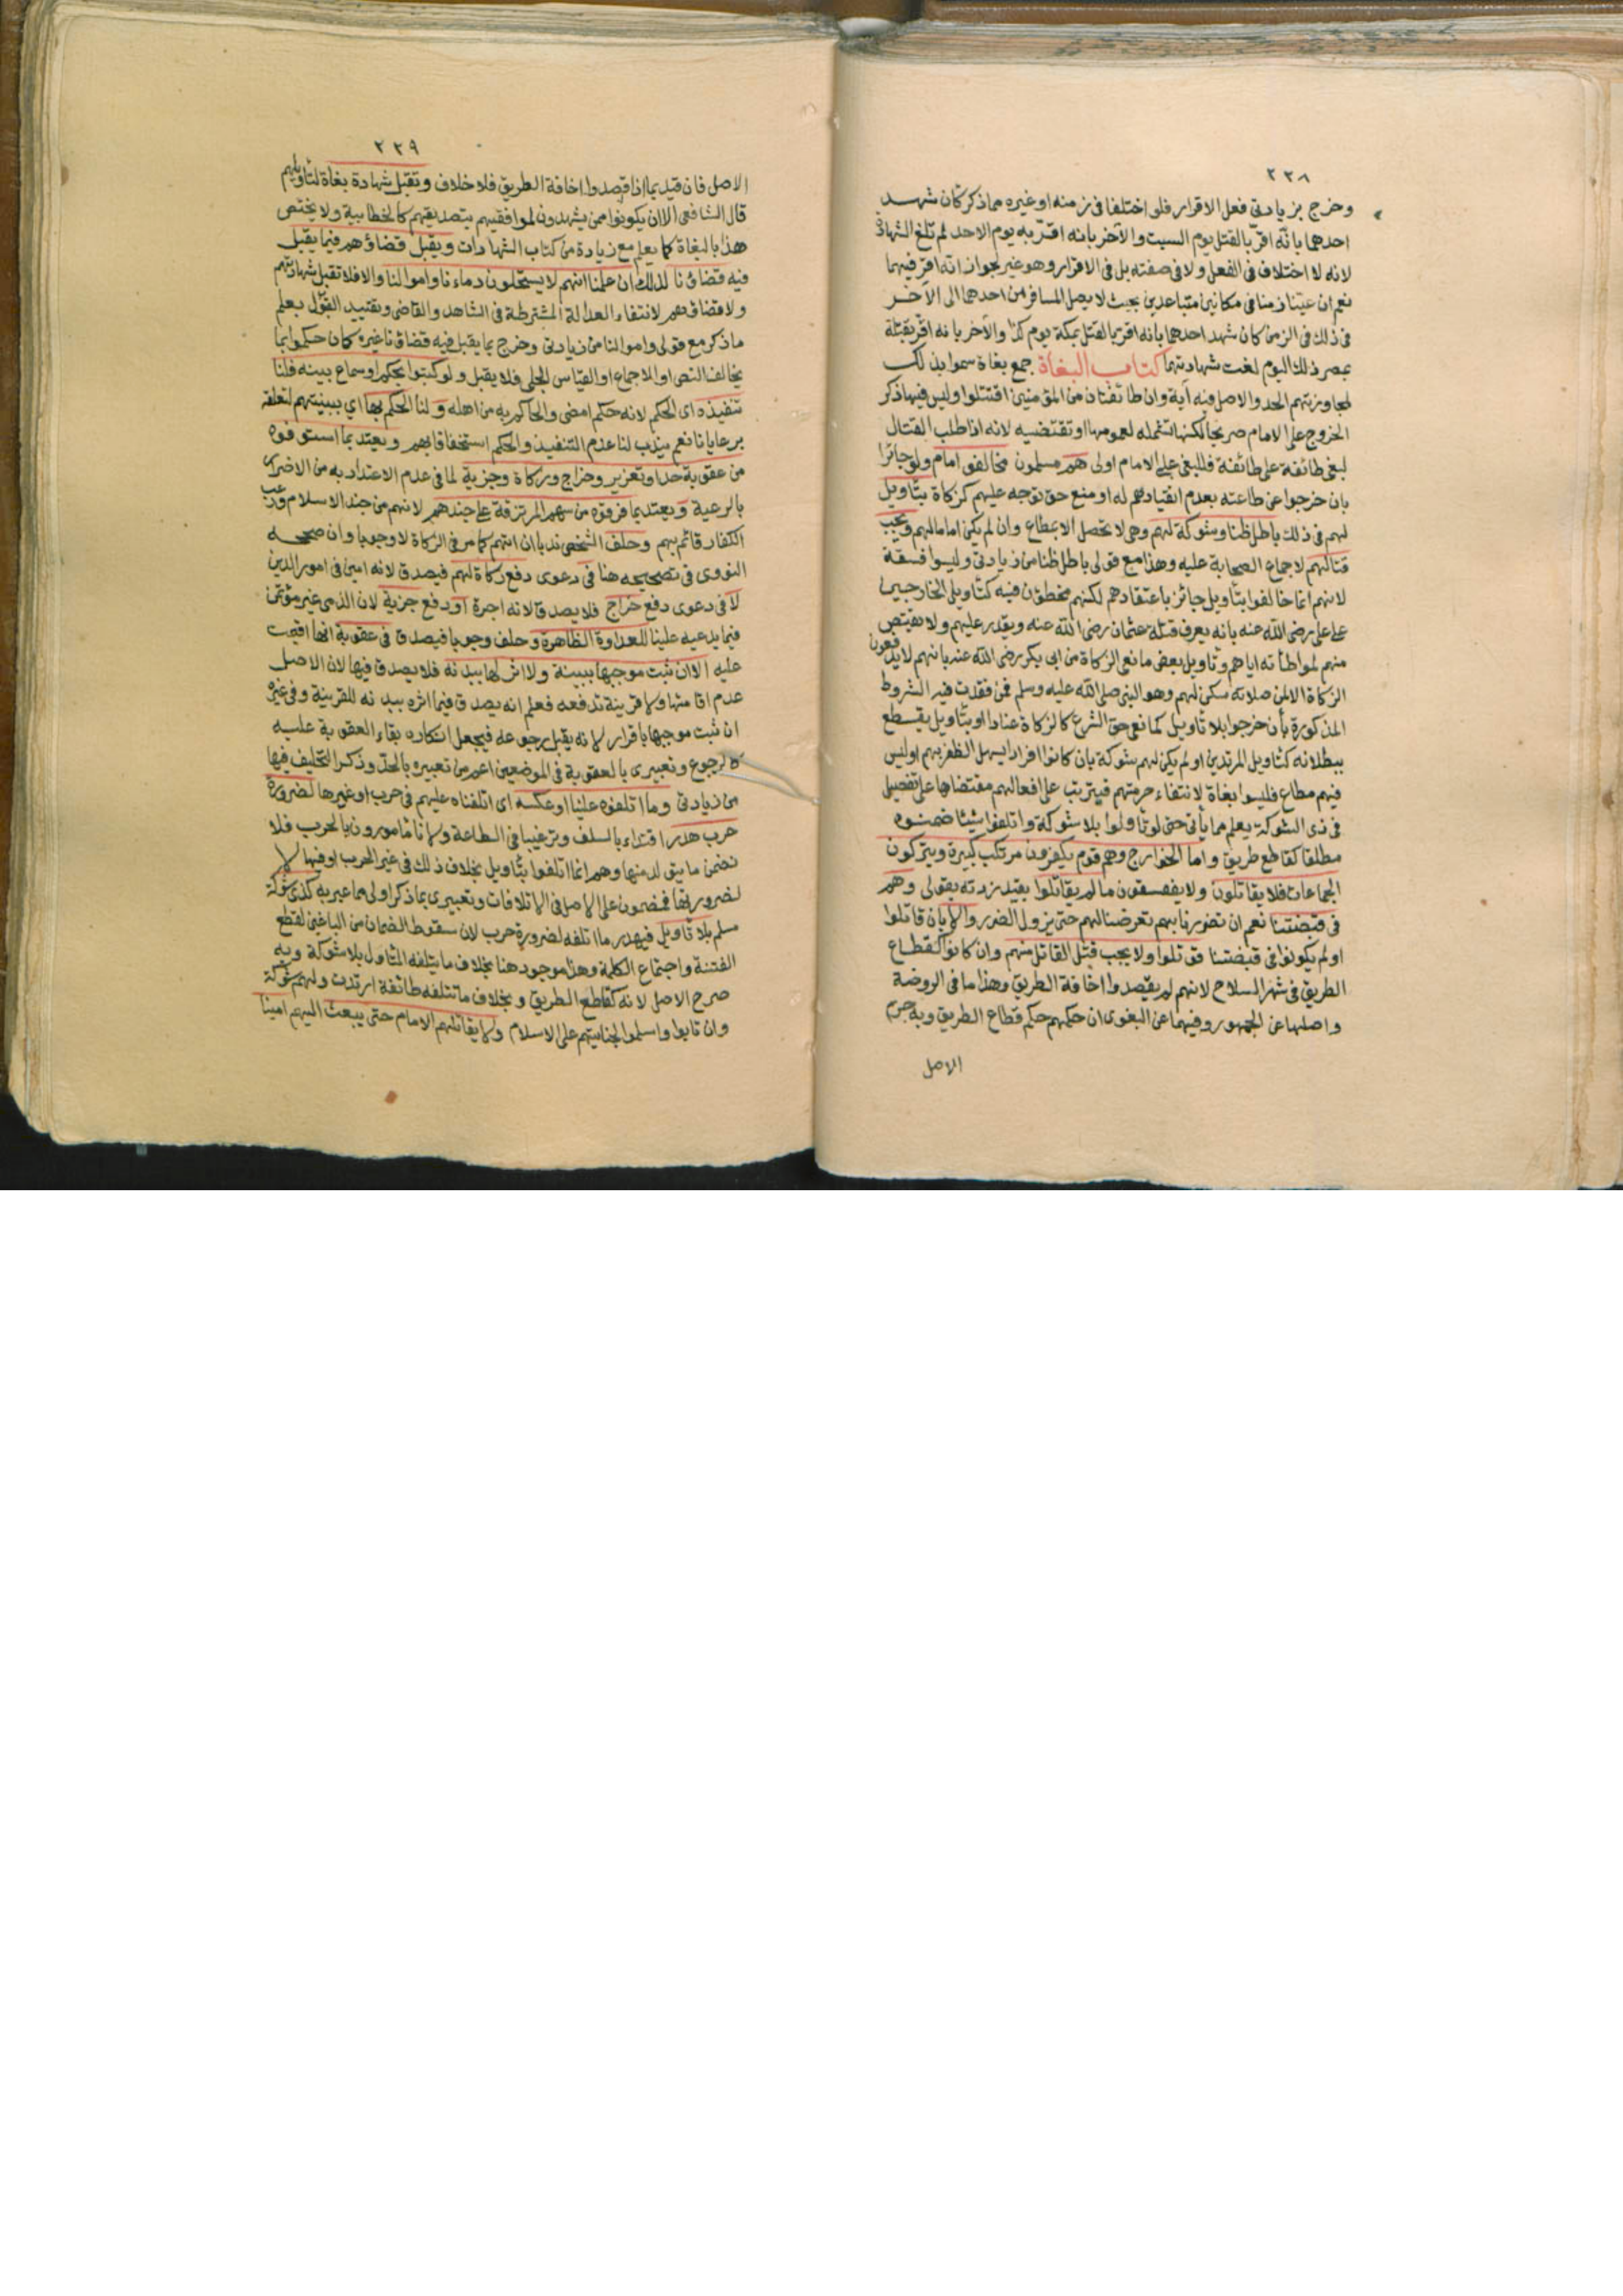 ٢٣٨
وخرج بزيادتي فعل الاقرار فلو اختلفا في زمنه او غيره مما ذكر كان شهد
احدهما بانه اقر بالقتل يوم السبت والآخر بانه اقر به يوم الاحد لم تلغ الشهادة
لانه لا اختلاف في الفعل ولا في صفته بل في الاقرار وهو غير لجواز انه اقر فيهما
نعم ان عينا زمنا في مكانين متباعدين بحيث لا يصل المسافر من احدهما الى الآخر
في ذلك في الزمن كان شهد احدهما بانه اقر بالقتل بمكة يوم كذا والآخر بانه اقر بقتله
بمصر ذلك اليوم لغت شهادتهما كتاب البغاة جمع بغاة سموا بذلك
لمجاوزتهم الحد والاصل فيه آية وان طائفتان من المؤمنين اقتتلوا وليس فيها ذكر
الخروج على الامام صريحا لكنها تشمله لعمومها او تقتضيه لانه اذا طلب القتال
لبغي طائفة على طائفة فللبغي على الامام اولى هم مسلمون مخالفو امام ولو جائرا
بان خرجوا عن طاعته بعدم انقيادهم له او منع حق توجه عليهم كزكاة بتأويل
لهم في ذلك باطل ظنا وشوكة لهم وهي لا تحصل الا بمطاع وان لم يكن اماما لهم ويجب
قتالهم لاجماع الصحابة عليه وهذا مع قولي باطل ظنا من زيادتي وليسوا فسقة
لانهم انما خالفوا بتأويل جائز باعتقادهم لكنهم مخطؤن فيه كتأويل الخارجين
على علي رضي الله عنه بانه يعرف قتلة عثمان رضي الله عنه ويقدر عليهم ولا يقتص
منهم لمواطأته اياهم وتأويل بعض مانعي الزكاة من ابي بكر رضي الله عنه بانهم لا يدفعون
الزكاة الا لمن صلاته سكن لهم وهو النبي صلى الله عليه وسلم فمن فقدت فيه الشروط
المذكورة بأن خرجوا بلا تأويل كمانعي حق الشرع كالزكاة عنادا او بتأويل يقطع
ببطلانه كتأويل المرتدين او لم يكن لهم شوكة بان كانوا افرادا يسهل الظفر بهم او ليس
فيهم مطاع فليسوا بغاة لانتفاء حرمتهم فيترتب على افعالهم مقتضاها على تفصيل
في ذي الشوكة يعلم مما يأتي حتى لو تأولوا بلا شوكة واتلفوا شيئا ضمنوه
مطلقا كقاطع طريق واما الخوارج وهم قوم يكفرون مرتكب كبيرة ويتركون
الجماعات فلا يقاتلون ولا يفسقون ما لم يقاتلوا بقيد زدته بقولي وهم
في قبضتنا نعم ان تضررنا بهم تعرضنا لهم حتى يزول الضرر والا بان قاتلوا
او لم يكونوا في قبضتنا قوتلوا ولا يجب قتل القاتل منهم وان كانوا كقطاع
الطريق في شهر السلاح لانهم لم يقصدوا اخافة الطريق وهذا ما في الروضة
واصلها عن الجمهور وفيهما عن البغوي ان حكمهم حكم قطاع الطريق وبه جزم
الاصل
٢٣٩
الاصل فان قيد بما اذا قصدوا اخافة الطريق فلا خلاف وتقبل شهادة بغاة لتأويلهم
قال الشافعي الا ان يكونوا ممن يشهدون لموافقيهم بتصديقهم كالخطابية ولا يختص
هذا بالبغاة كما يعلم مع زيادة من كتاب الشهادات ويقبل قضاؤهم فيما يقبل
فيه قضاؤنا لذلك ان علمنا انهم لا يستحلون دماءنا واموالنا والا فلا تقبل شهادتهم
ولا قضاؤهم لانتفاء العدالة المشترطة في الشاهد والقاضي وتقييد القبول بعلم
ما ذكر مع قولي واموالنا من زيادتي وخرج بما يقبل فيه قضاؤنا غيره كان حكموا بما
يخالف النص او الاجماع او القياس الجلي فلا يقبل ولو كتبوا بحكم او سماع بينه فلنا
تنفيذه اي الحكم لانه حكم امضي والحاكم به من اهله ولنا الحكم بها اي ببينتهم لتعلقه
برعايانا نعم يندب لنا عدم التنفيذ والحكم استخفافا بهم ويعتد بما استوفوه
من عقوبة حد او تعزير وخراج وزكاة وجزية لما في عدم الاعتداد به من الاضرار
بالرعية ويعتد بما فرقوه من سهم المرتزقة على جندهم لانهم من جند الاسلام ورعب
الكفار قائم بهم وحلف الشخص ندبا ان اتهم كما مر في الزكاة لا وجوبا وان صححه
النووي في تصحيحه هنا في دعوى دفع زكاة لهم فيصدق لانه امين في امور الدين
لا في دعوى دفع خراج فلا يصدق لانه اجرة او دفع جزية لان الذمي غير مؤتمن
فيما يدعيه علينا للعداوة الظاهرة وحلف وجوبا فيصدق في عقوبة انها اقيمت
عليه الا ان ثبت موجبها ببينة ولا اثر لها ببدنه فلا يصدق فيها لان الاصل
عدم اقامتها ولا قرينة تدفعه فعلم انه يصدق فيما اثره ببدنه للقرينة وفي غيره
ان ثبت موجبها باقرار لانه يقبل رجوعه فيجعل انكاره بقاء العقوبة عليه
كالرجوع وتعبيري بالعقوبة في الموضعين اعم من تعبيره بالحد وذكر التحليف فيها
من زيادتي وما اتلفوه علينا او عكسه اي اتلفناه عليهم في حرب او غيرها لضرورة
حرب هدر اقتداء بالسلف وترغيبا في الطاعة ولانا مأمورون بالحرب فلا
نضمن ما يتولد منها وهم انما اتلفوا بتأويل بخلاف ذلك في غير الحرب او فيها لا
لضرورتها فمضمون على الاصل في الاتلافات وتعبيري بما ذكر اولى مما عبر به كذي شوكة
مسلم بلا تأويل فيهدر ما اتلفه لضرورة حرب لان سقوط الضمان من الباغين لقطع
الفتنة واجتماع الكلمة وهذا موجود هنا بخلاف ما يتلفه المتأول بلا شوكة وبه
صرح الاصل لانه كقاطع الطريق وبخلاف ما تتلفه طائفة ارتدت ولهم شوكة
وان تابوا واسلموا لجنايتهم على الاسلام ولا يقاتلهم الامام حتى يبعث اليهم امينا